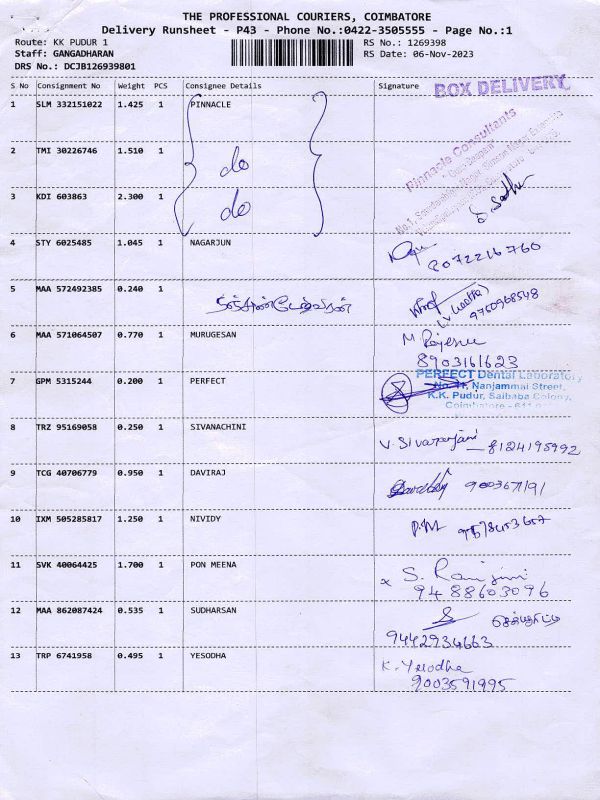 THE PROFESSIONAL COURIERS, COIMBATORE
Delivery Runsheet - P43 - Phone No.:0422-3505555 - Page No.:1
Route: KK PUDUR 1
RS No.: 1269398
Staff: GANGADHARAN
RS Date: 06-Nov-2023
DRS No.: DCJB126939801
S No Consignment No Weight PCS Consignee Details Signature
BOX DELIVERY
1 SLM 332151022 1.425 1 PINNACLE
Pinnacle Consultants
2 TMI 30226746 1.510 1 do
3 KDI 603863 2.300 1 do
4 STY 6025485 1.045 1 NAGARJUN
8072216760
5 MAA 572492385 0.240 1
9750968548
6 MAA 571064507 0.770 1 MURUGESAN
8903161623
7 GPM 5315244 0.200 1 PERFECT
PERFECT Dental Laboratory
No. 11, Nanjammai Street,
K.K. Pudur, Saibaba Colony,
Coimbatore - 611
8 TRZ 95169058 0.250 1 SIVANACHINI
V. Sivaranjani 8124195992
9 TCG 40706779 0.950 1 DAVIRAJ
9003671191
10 IXM 505285817 1.250 1 NIVIDY
11 SVK 40064425 1.700 1 PON MEENA
x S. Ranjini
9488603096
12 MAA 862087424 0.535 1 SUDHARSAN
9442934663
13 TRP 6741958 0.495 1 YESODHA
K. Yesodha
9003591995